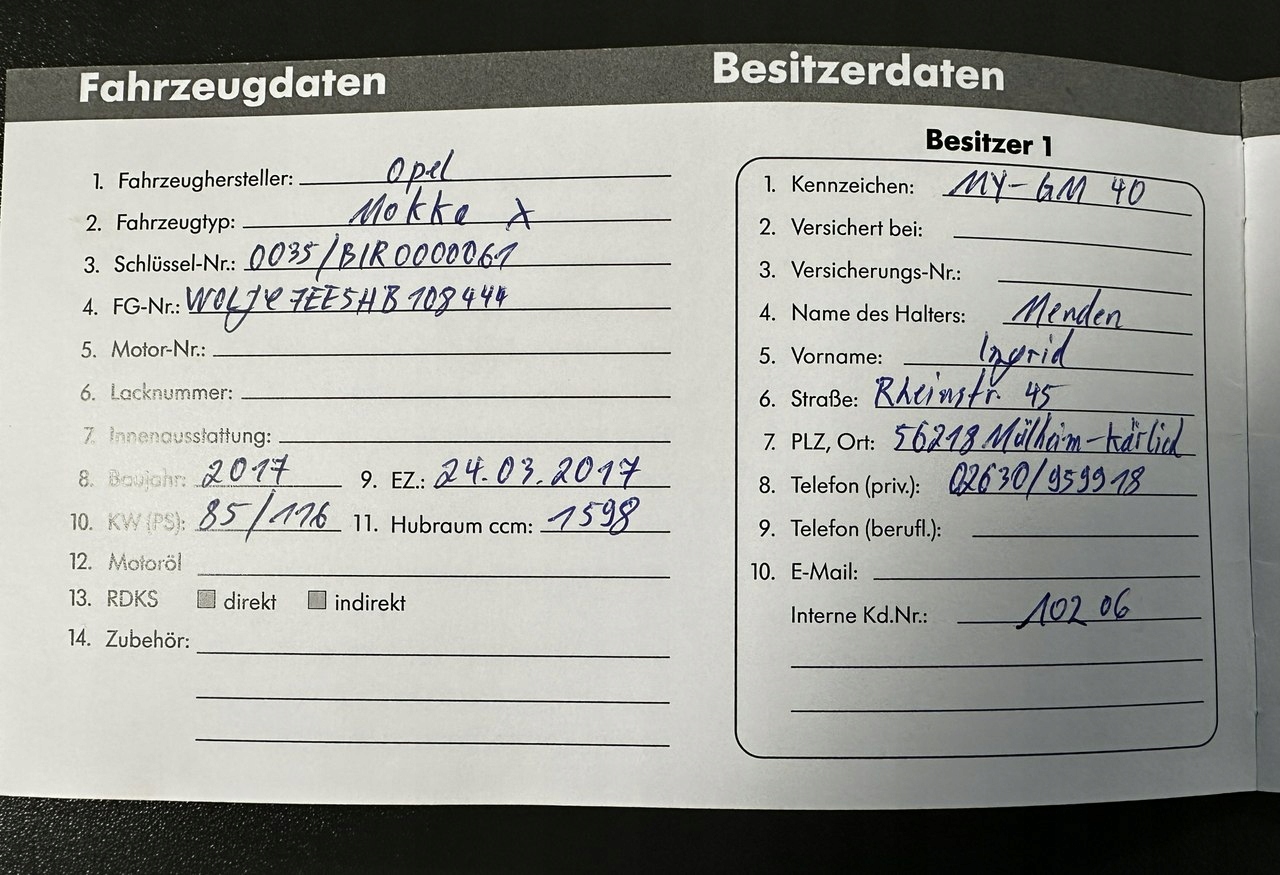 Fahrzeugdaten
1. Fahrzeughersteller: Opel
2. Fahrzeugtyp: Mokka X
3. Schlüssel-Nr.: 0035/BIR0000061
4. FG-Nr.: WOLJC7EE5HB108444
5. Motor-Nr.:
6. Lacknummer:
7. Innenausstattung:
8. Baujahr: 2017 9. EZ.: 24.03.2017
10. KW (PS): 85/116 11. Hubraum ccm: 1598
12. Motoröl
13. RDKS direkt indirekt
14. Zubehör:
Besitzerdaten
Besitzer 1
1. Kennzeichen: MY-GM 40
2. Versichert bei:
3. Versicherungs-Nr.:
4. Name des Halters: Menden
5. Vorname: Ingrid
6. Straße: Rheinstr. 45
7. PLZ, Ort: 56218 Mülheim-Kärlich
8. Telefon (priv.): 02630/959918
9. Telefon (berufl.):
10. E-Mail:
Interne Kd.Nr.: 10206